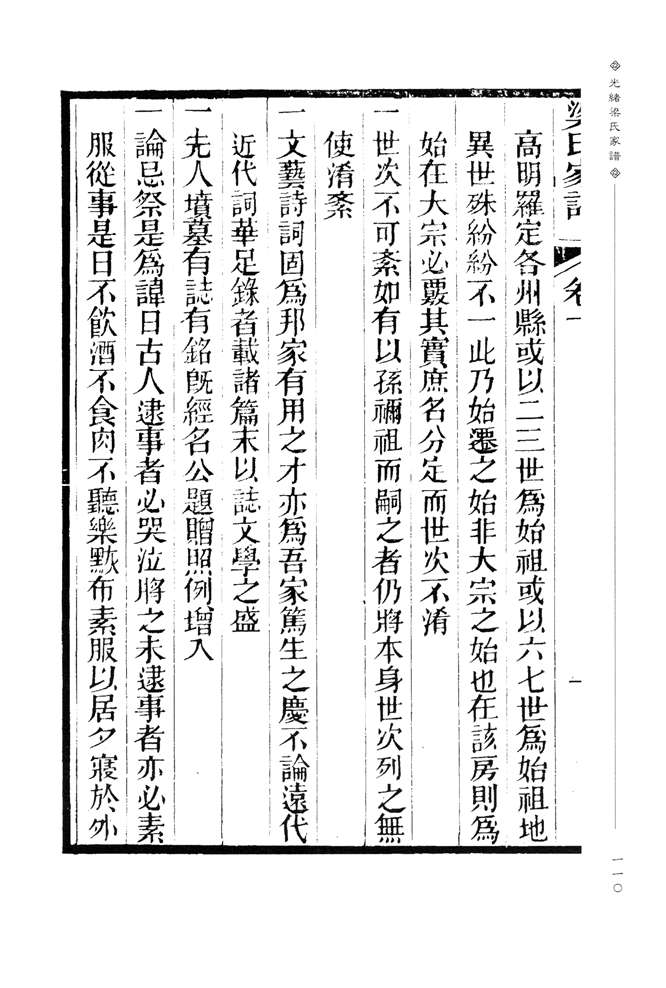 光緒梁氏家譜
一一〇
梁氏家譜 卷一
高明羅定各州縣或以二三世爲始祖或以六七世爲始祖地
異世殊紛紛不一此乃始遷之始非大宗之始也在該房則爲
始在大宗必覈其實庶名分定而世次不淆
一世次不可紊如有以孫禰祖而嗣之者仍將本身世次列之無
使淆紊
一文藝詩詞固爲邦家有用之才亦爲吾家篤生之慶不論遠代
近代詞華足錄者載諸篇末以誌文學之盛
一先人墳墓有誌有銘旣經名公題贈照例增入
一論忌祭是爲諱日古人逮事者必哭泣將之未逮事者亦必素
服從事是日不飮酒不食肉不聽樂黪布素服以居夕寢於外